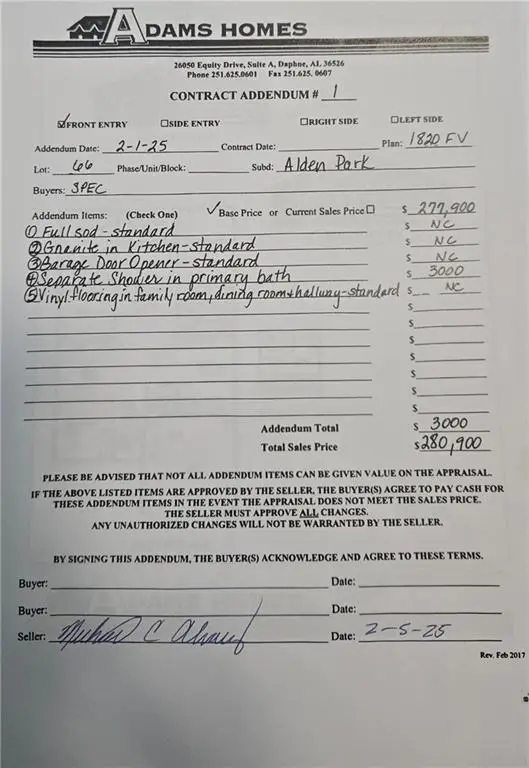 ADAMS HOMES
26050 Equity Drive, Suite A, Daphne, AL 36526
Phone 251.625.0601 Fax 251.625. 0607
CONTRACT ADDENDUM # 1
☑FRONT ENTRY ☐SIDE ENTRY ☐RIGHT SIDE ☐LEFT SIDE
Addendum Date: 2-1-25 Contract Date: Plan: 1820 FV
Lot: 66 Phase/Unit/Block: Subd: Alden Park
Buyers: SPEC
Addendum Items: (Check One) ✓Base Price or Current Sales Price☐ $ 277,900
① Full sod - standard $ NC
② Granite in Kitchen - standard $ NC
③ Garage Door Opener - standard $ NC
④ Separate Shower in primary bath $ 3000
⑤ Vinyl flooring in family room, dining room + hallway - standard $ NC
$
$
$
$
$
$
$
Addendum Total $ 3000
Total Sales Price $280,900
PLEASE BE ADVISED THAT NOT ALL ADDENDUM ITEMS CAN BE GIVEN VALUE ON THE APPRAISAL.
IF THE ABOVE LISTED ITEMS ARE APPROVED BY THE SELLER, THE BUYER(S) AGREE TO PAY CASH FOR
THESE ADDENDUM ITEMS IN THE EVENT THE APPRAISAL DOES NOT MEET THE SALES PRICE.
THE SELLER MUST APPROVE ALL CHANGES.
ANY UNAUTHORIZED CHANGES WILL NOT BE WARRANTED BY THE SELLER.
BY SIGNING THIS ADDENDUM, THE BUYER(S) ACKNOWLEDGE AND AGREE TO THESE TERMS.
Buyer: Date:
Buyer: Date:
Seller: Michael C Date: 2-5-25
Rev. Feb 2017